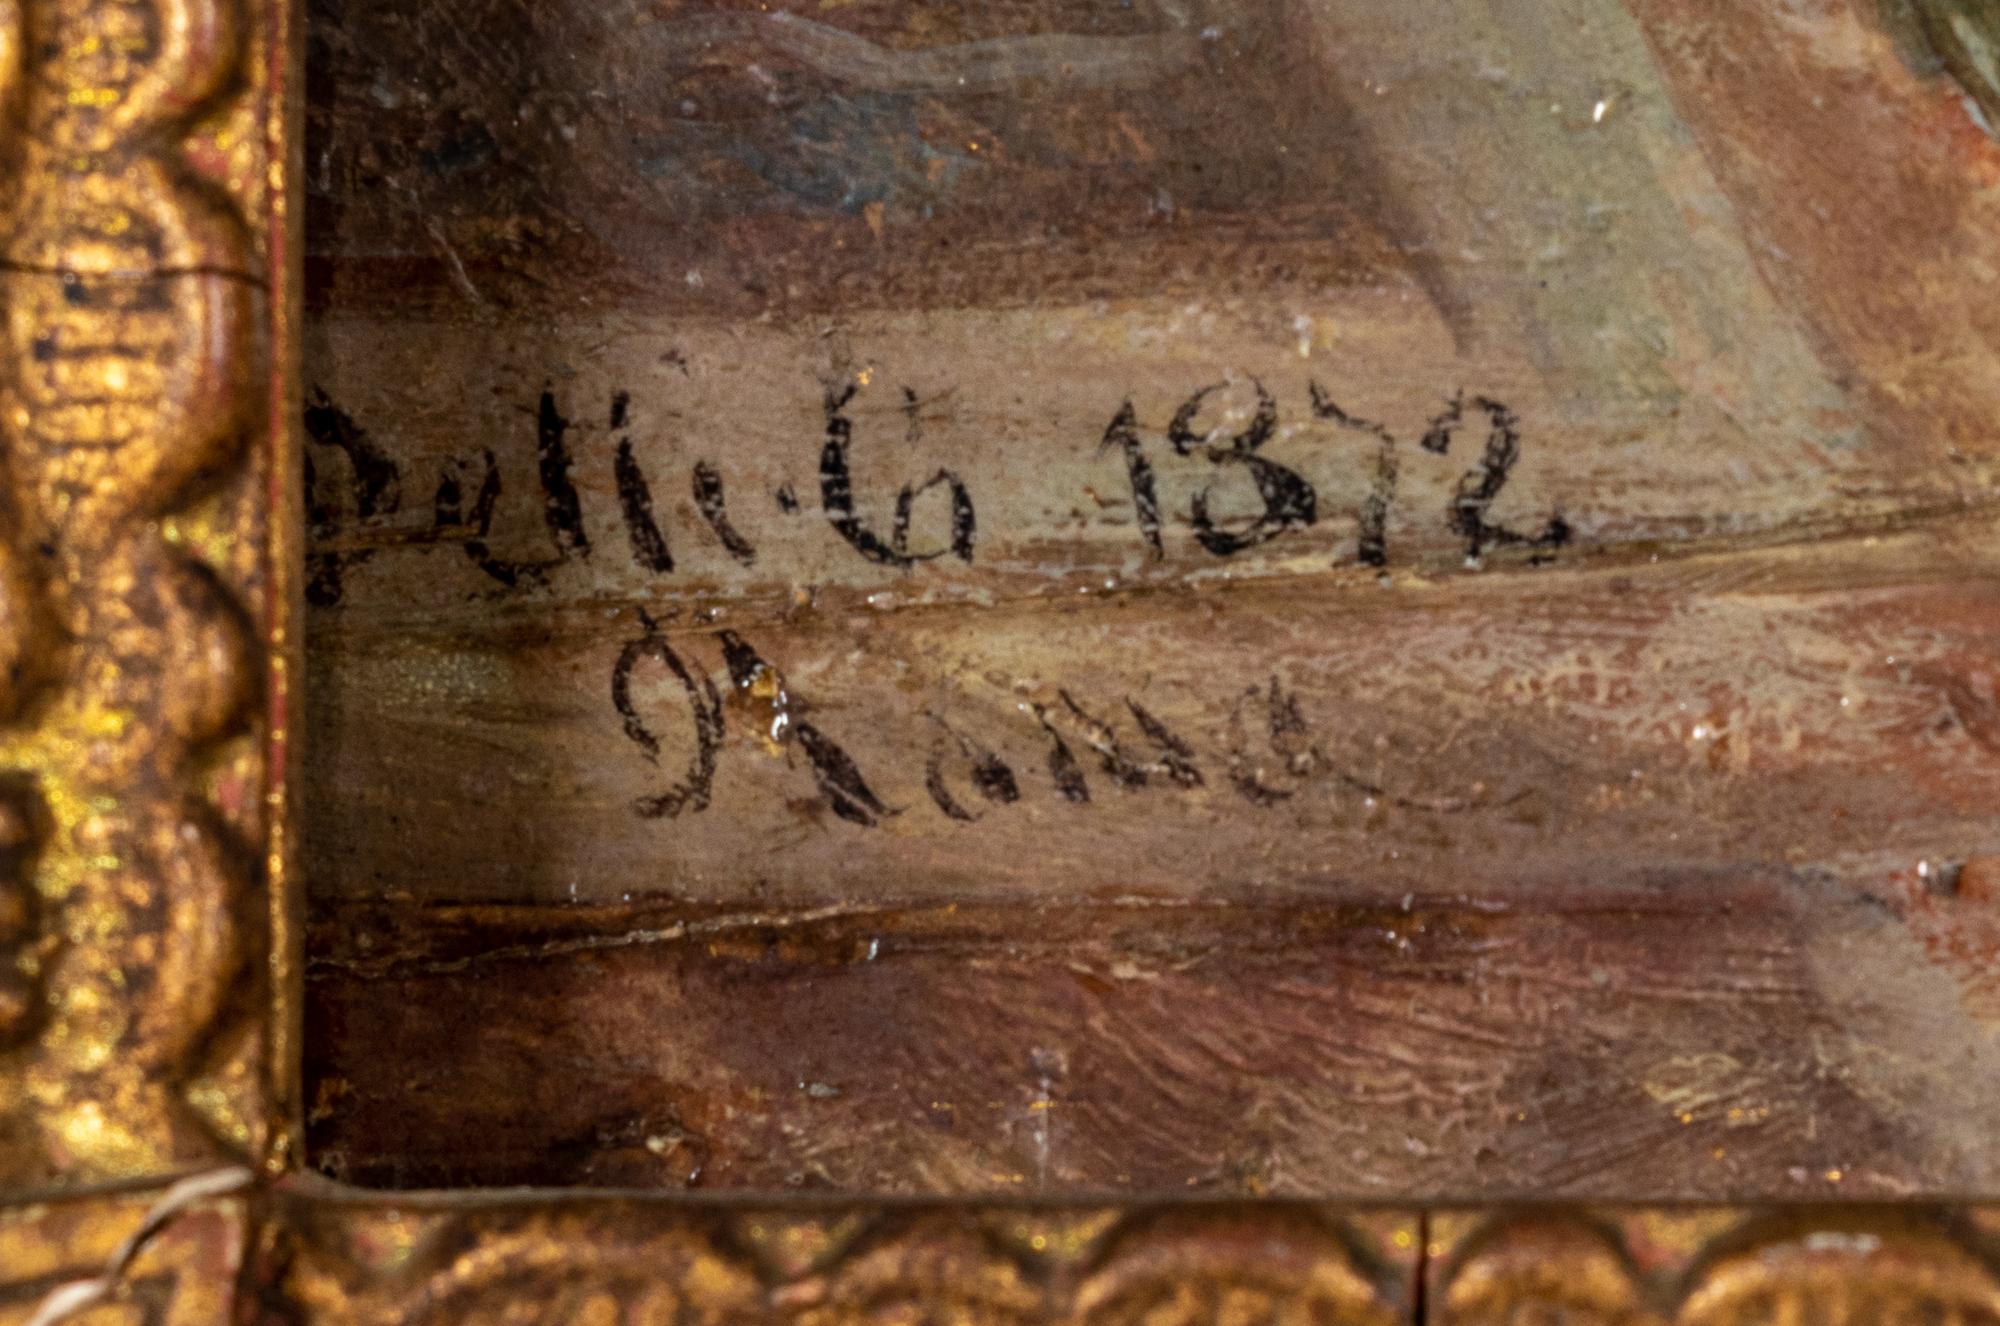 Galli. G 1872
Roma